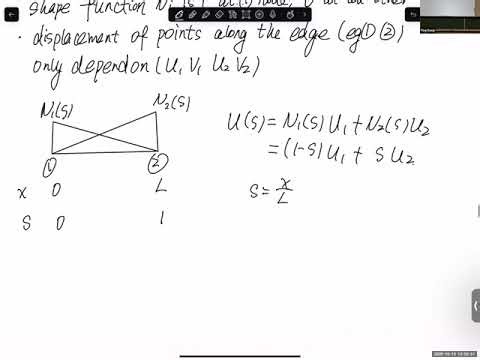 shape function Ni (s)
· displacement of points along the edge (eg ① ②)
only depend on (U1 V1 U2 V2)
N1(s) N2(s)
① ②
x 0 L
S 0 1
U(s) = N1(s) U1 + N2(s) U2
= (1-s) U1 + S U2
S = x/L